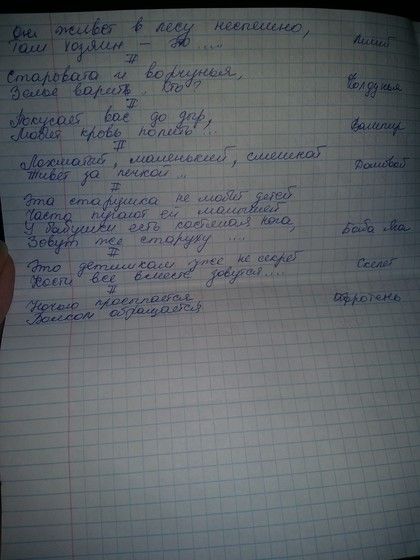 Он живёт в лесу неспешно,
Там хозяин – это ..... Леший
II
Старовата и ворчунья,
Зелье варит.. Кто? Колдунья
II
Покусает вас до дыр,
Любит кровь попить... Вампир
II
Лохматый, маленький, смешной
Живёт за печкой .. Домовой
II
Эта старушка не любит детей
Часто пугают ей малышей
У бабушки есть костяная нога,
Зовут же старуху .... Баба Яга
II
Это детишкам уже не секрет
Кости все вместе зовутся.... Скелет
II
Ночью просыпается
Волком обращается Оборотень